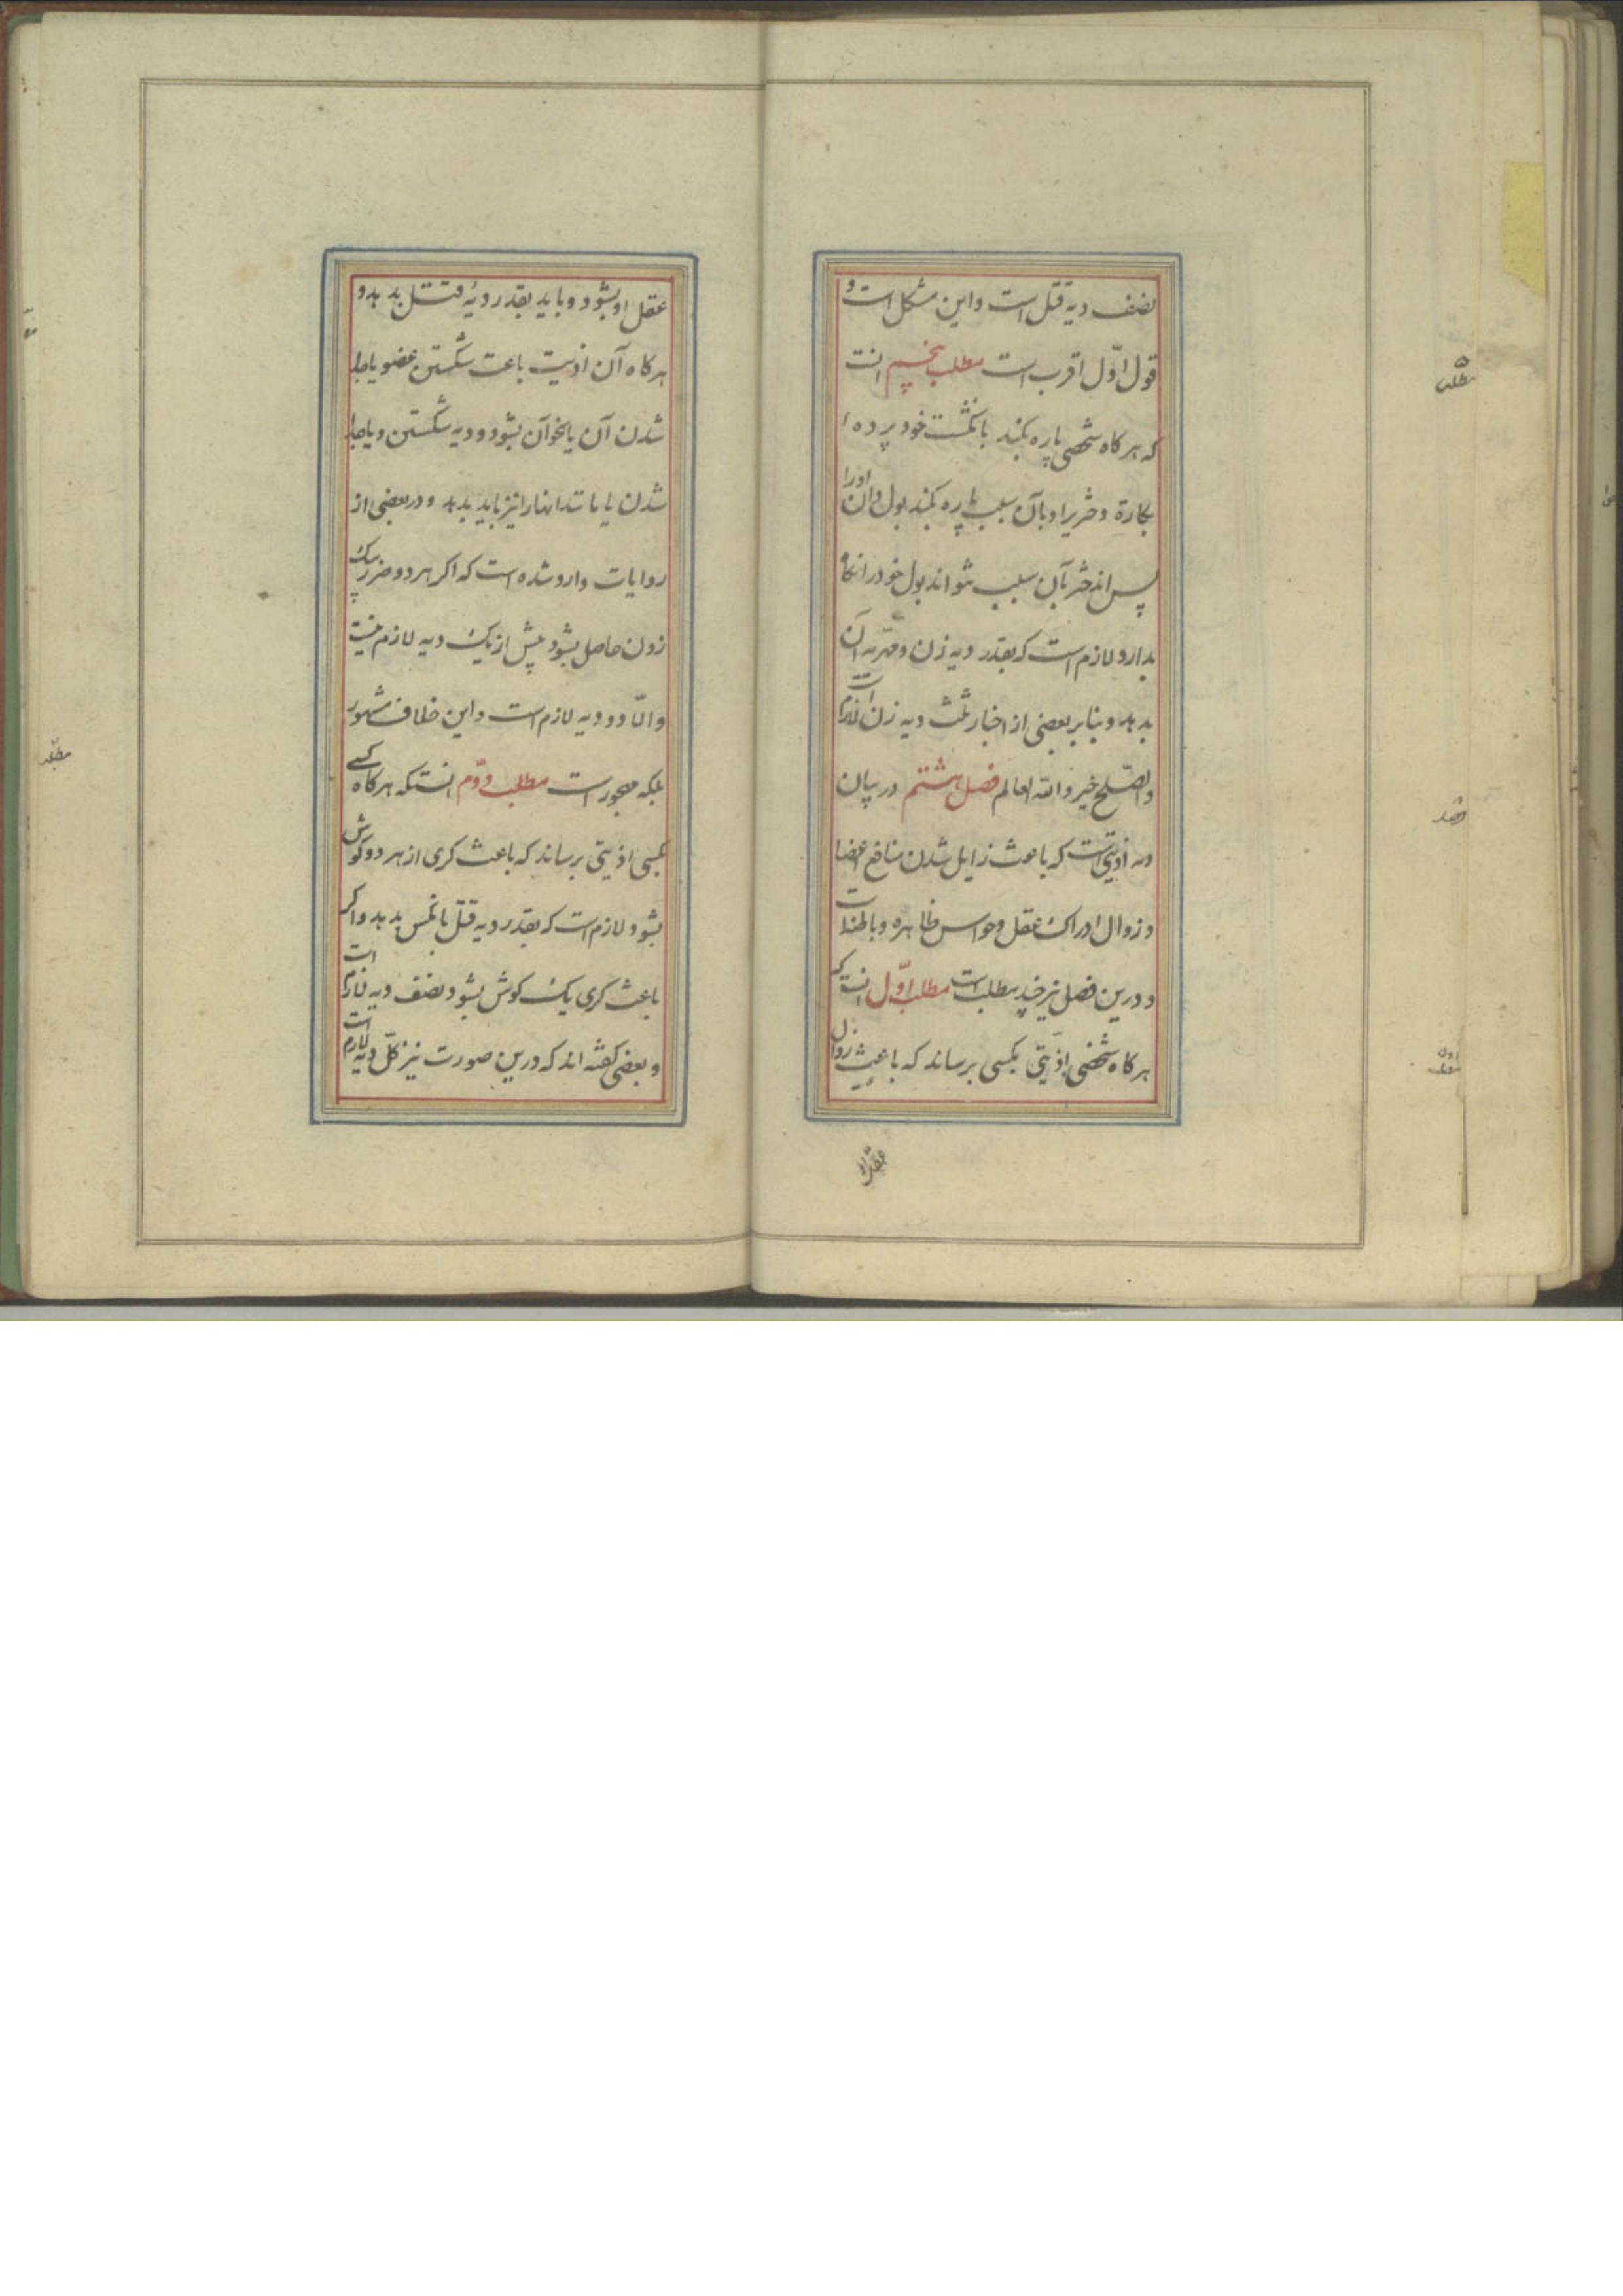 نصف دیه قتل است و این مشکل است و
قول اوّل اقرب است مطلب پنجم انست
که هر کاه شخصی پاره بکند بانکشت خود پرده ء
بکارة دختریرا و بآن سبب پاره بکند بول دان اورا
پس اندختر بآن سبب نتواند بول خود را نکاه
بدارد لازم است که بقدر دیه زن و مهریه آن
بدهد و بنابر بعضی از اخبار ثلث دیه زن لازم است
والصّلح خیر و الله العالم فصل هشتم در بیان
دیه اذیتی است که باعث زایل شدن منافع اعضا
و زوال ادراک عقل و حواس ظاهره و باطنه است
و درین فصل نیز چند مطلب است مطلب اوّل انست که
هر کاه شخصی اذیّتی بکسی برساند که باعث زوال
عقل او
عقل او بشود و باید بقدر دیهٔ قتل بدهد و
هر کاه آن اذیت باعث شکستن عضو یا جدا
شدن آن یا نحو آن بشود و دیه شکستن و یا جدا
شدن یا مانند انها را نیز باید بدهد و در بعضی از
روایات وارد شده است که اکر هر دو ضرر بیک
زدن حاصل بشود بیش از یک دیه لازم نیست
و الّا دو دیه لازم است و این خلاف مشهور
بلکه مهجور است مطلب دوّم انستکه هر کاه کسی
بکسی اذیّتی برساند که باعث کری از هر دو کوش
بشود لازم است که بقدر دیه قتل بانکس بدهد و اکر
باعث کری یک کوش بشود نصف دیه لازم است
و بعضی کفته اند که درین صورت نیز کلّ دیه لازم است